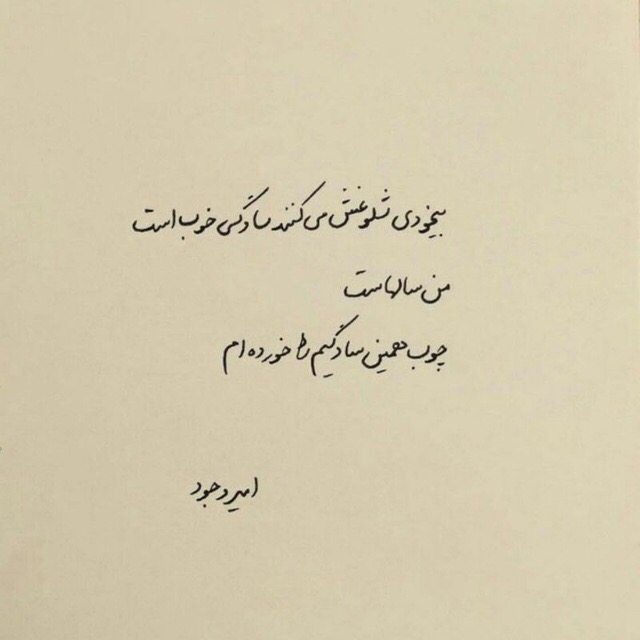 بیخودی شلوغش می کنند سادگی خوب است
من سالهاست
چوب همین سادگیم را خورده ام
امیر وجود